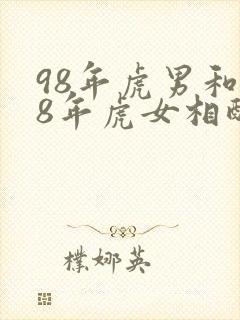 98年虎男和
8年虎女相配
樸娜英